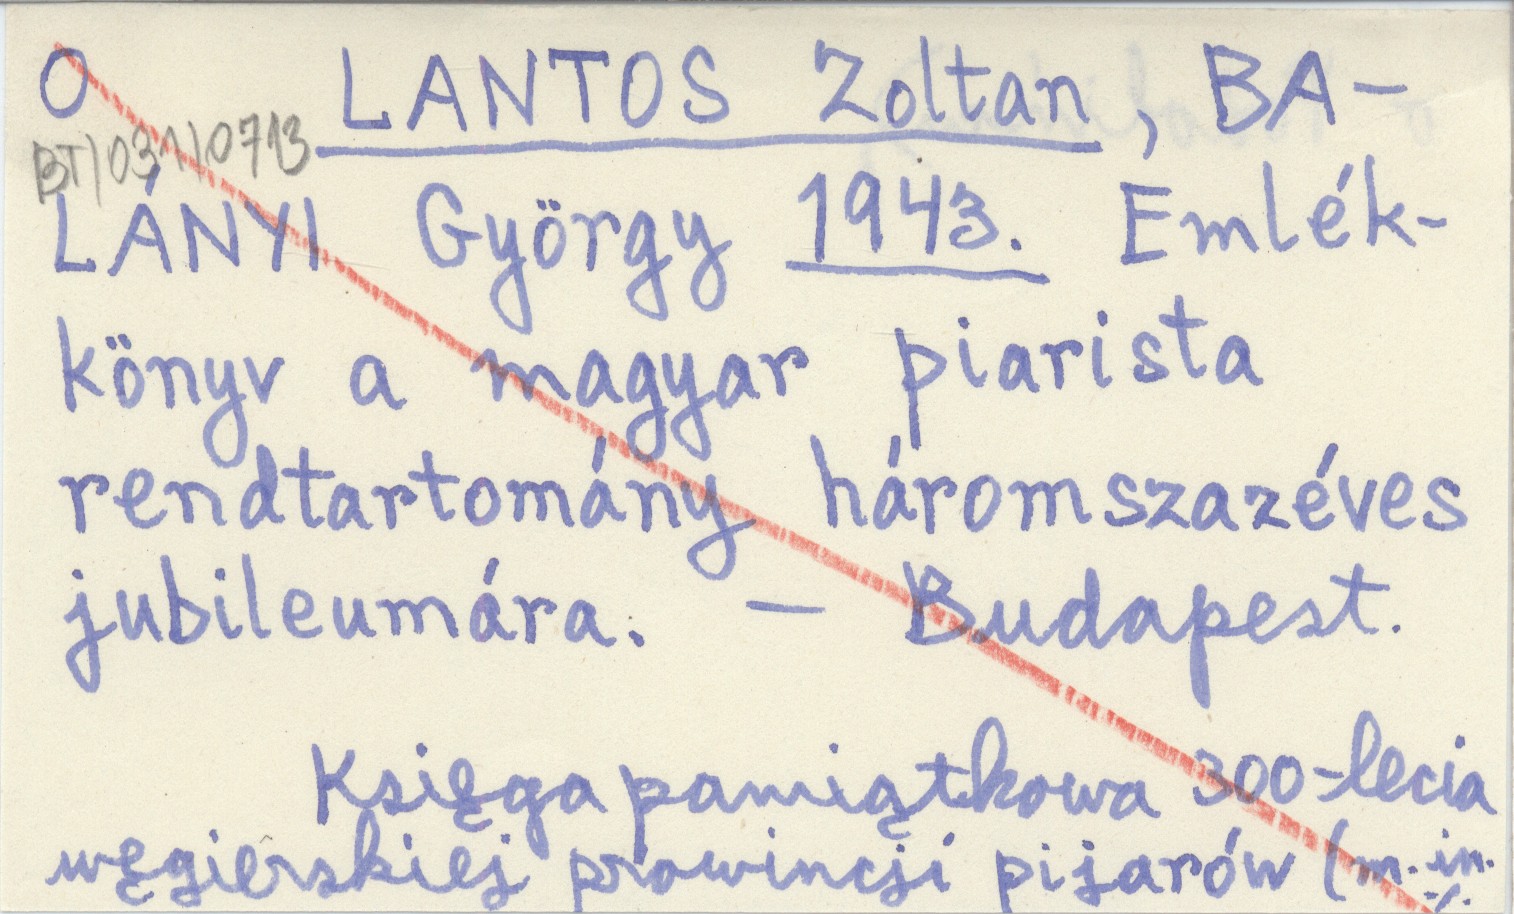 O LANTOS Zoltan, BA-
BT/031/0713
LÁNYI György 1943. Emlék-
könyv a magyar piarista
rendtartomány háromszazéves
jubileumára. — Budapest.
Księga pamiątkowa 300-lecia
węgierskiej prowincji pijarów (m. in.
./.